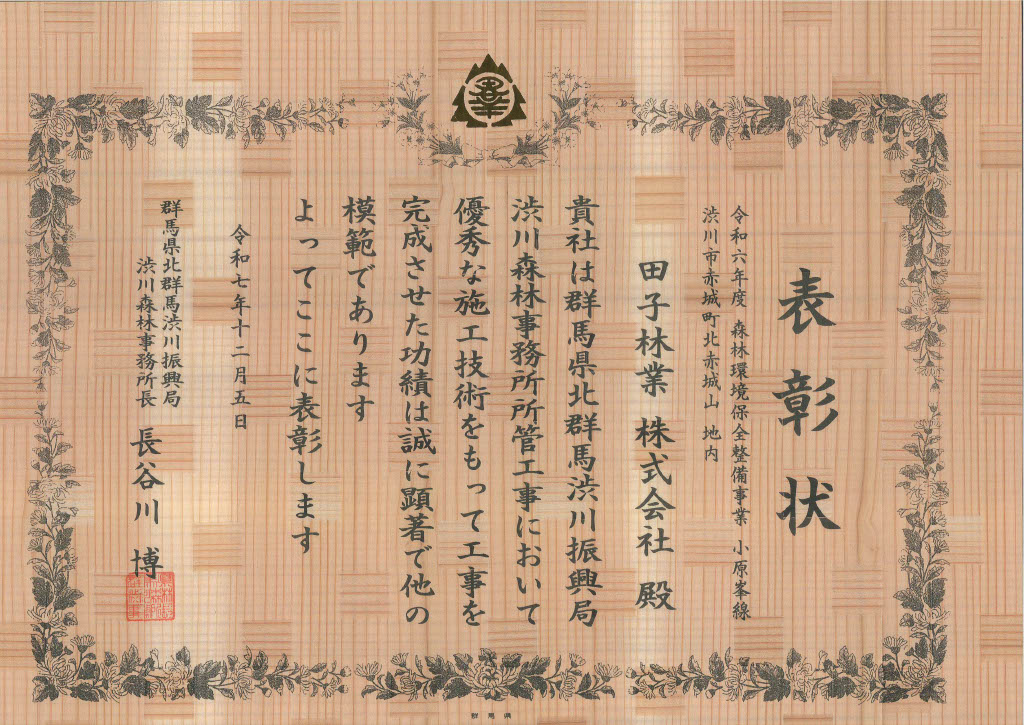 表彰状
令和六年度 森林環境保全整備事業 小原峯線
渋川市赤城町北赤城山 地内
田子林業 株式会社 殿
貴社は群馬県北群馬渋川振興局
渋川森林事務所所管工事において
優秀な施工技術をもって工事を
完成させた功績は誠に顕著で他の
模範であります
よってここに表彰します
令和七年十二月五日
群馬県北群馬渋川振興局
渋川森林事務所長 長谷川 博
群馬県